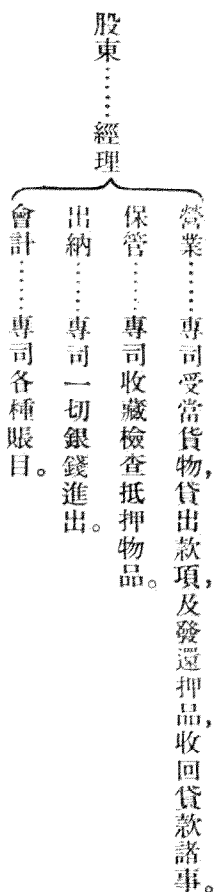 股東……經理
營業……專司受當貨物,貸出款項,及發還押品,收回貸款諸事。
保管……專司收藏檢查抵押物品。
出納……專司一切銀錢進出。
會計……專司各種賬目。